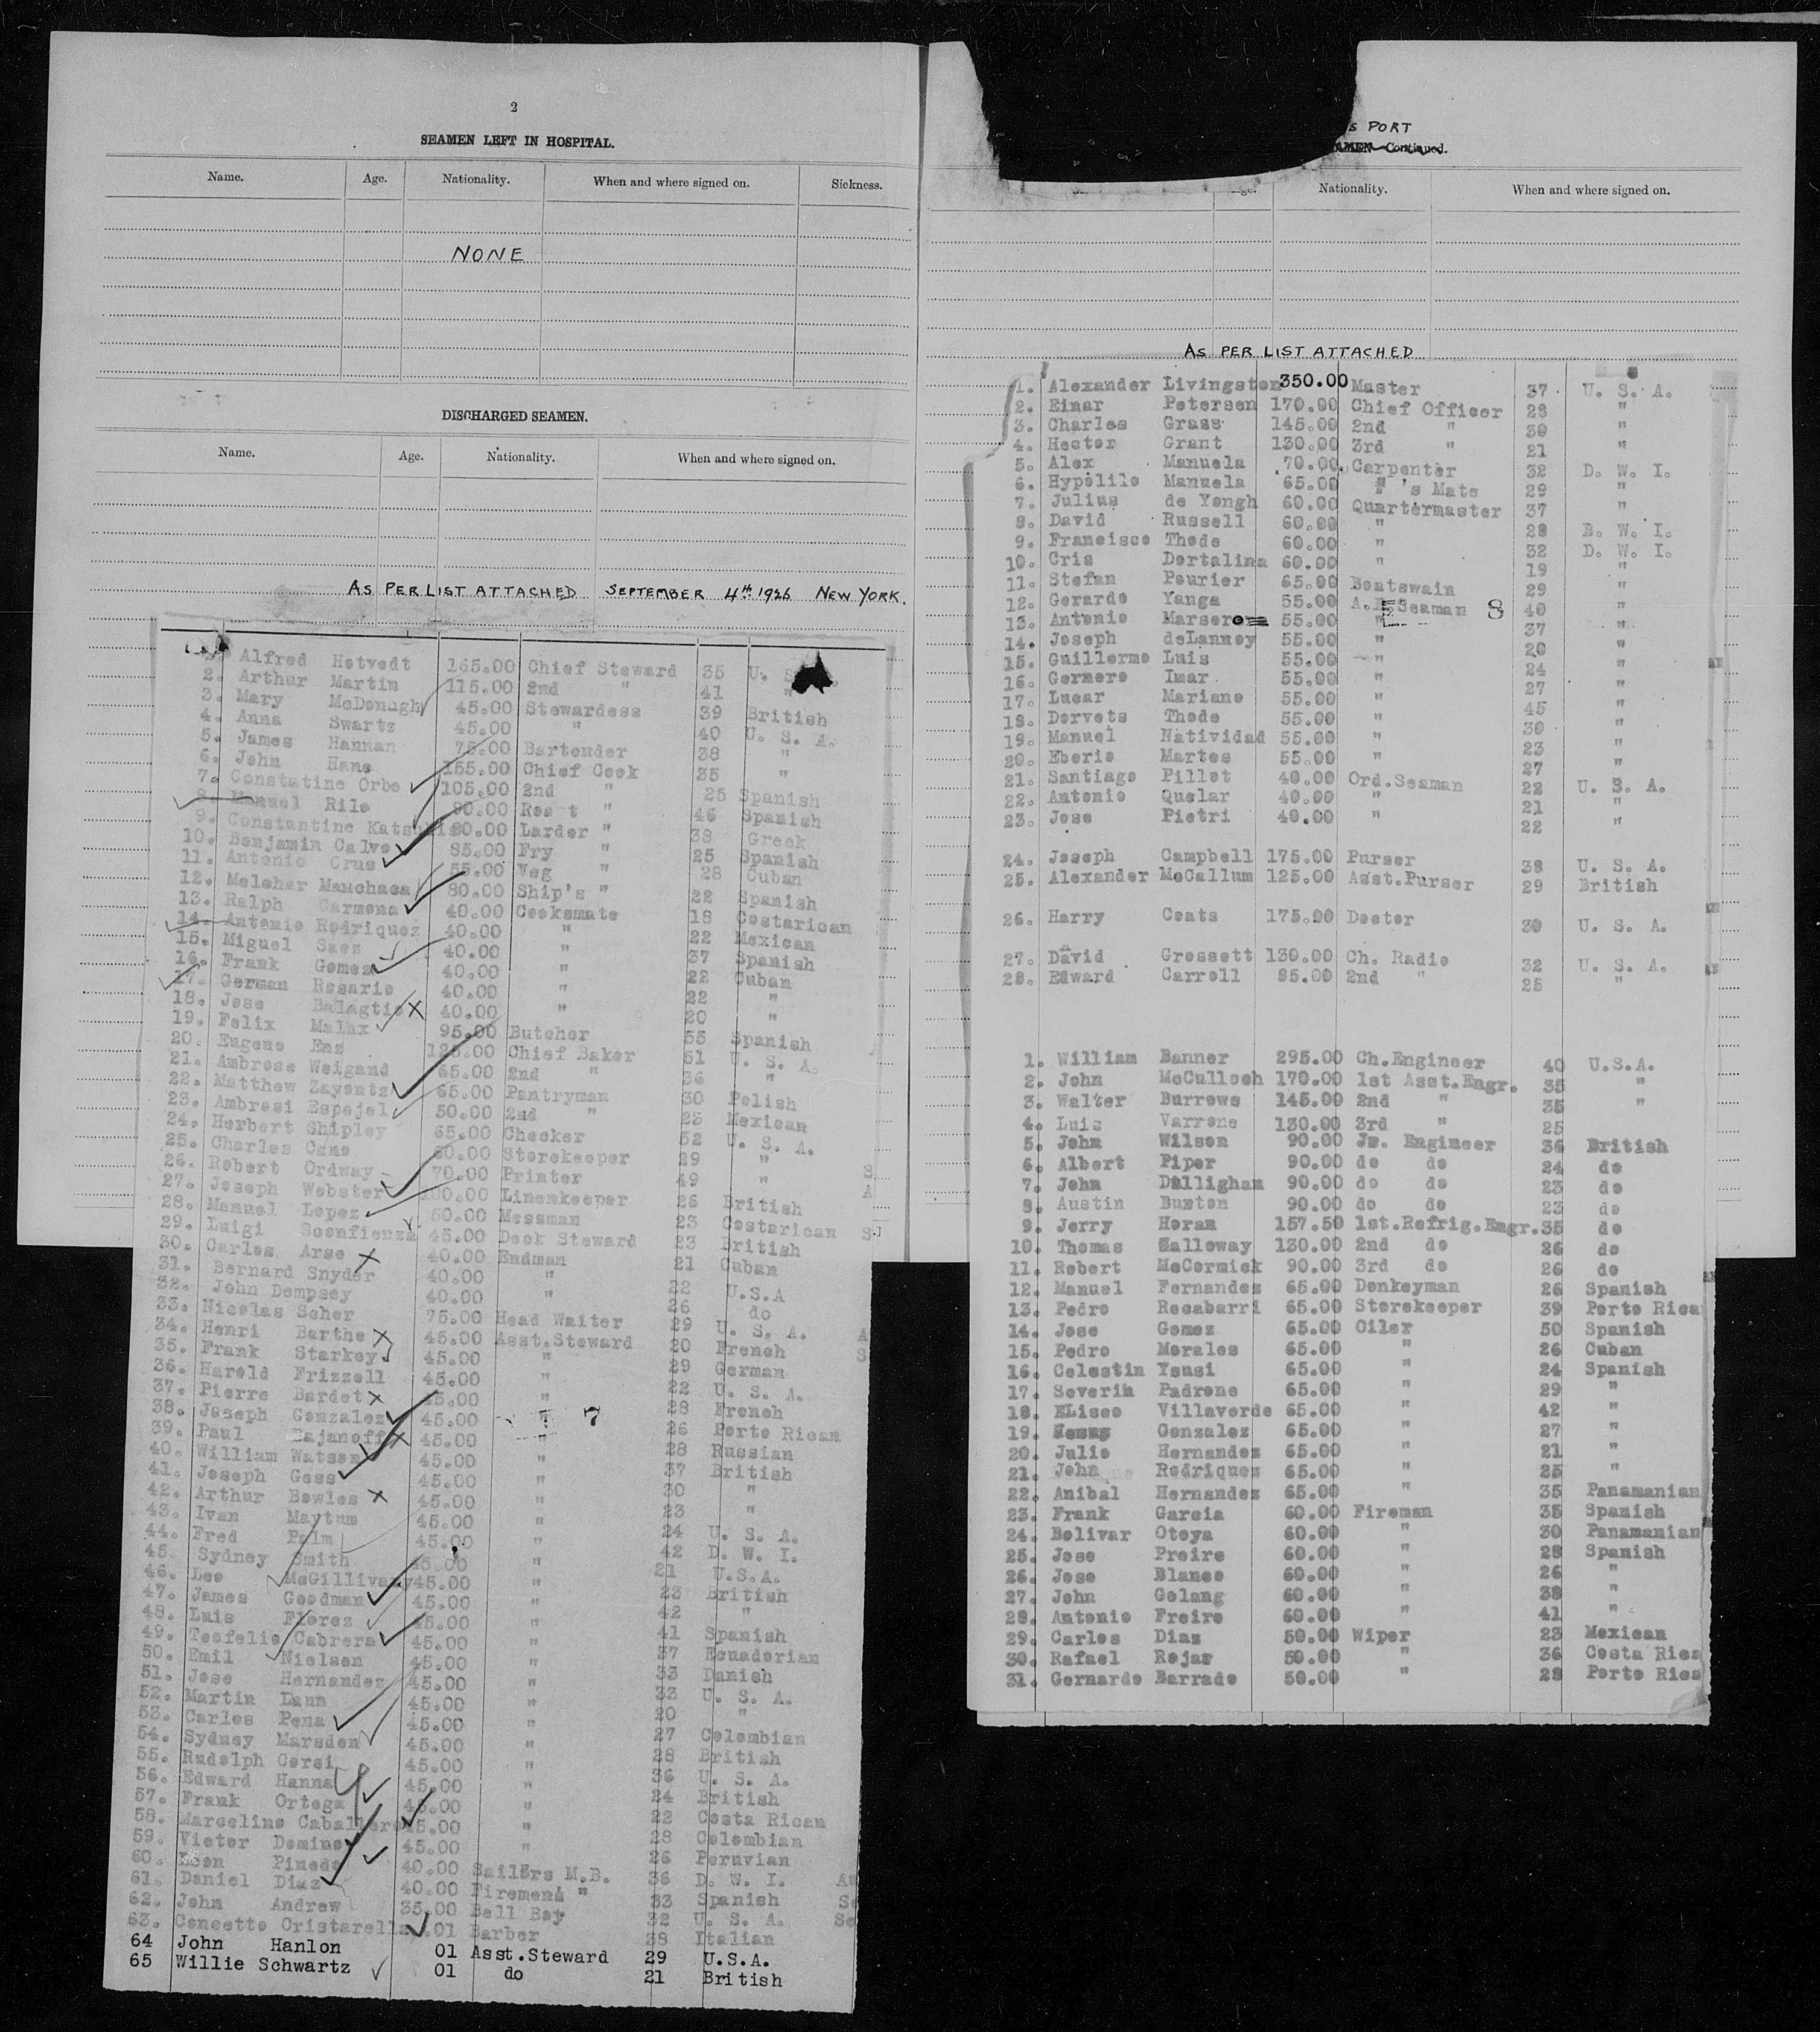 2
SEAMEN LEFT IN HOSPITAL.
Name. Age. Nationality. When and where signed on. Sickness.
NONE
DISCHARGED SEAMEN.
Name. Age. Nationality. When and where signed on.
AS PER LIST ATTACHED SEPTEMBER 4th 1926 NEW YORK.
Alfred Hetvedt 165.00 Chief Steward 35 U. S.
2. Arthur Martin 115.00 2nd " 41 "
3. Mary McDonagh 45.00 Stewardess 39 British
4. Anna Swartz 45.00 " 40 U. S. A.
5. James Hannan 75.00 Bartender 38 "
6. John Hans 155.00 Chief Cook 35 "
7. Constatine Orbe 105.00 2nd " 25 Spanish
8. Manuel Rilo 90.00 Roast " 46 Spanish
9. Constantine 80.00 Larder " 38 Greek
10. Benjamin Calvo 85.00 Fry " 25 Spanish
11. Antonio Crus 85.00 Veg " 28 Cuban
12. Melchar Manchaca 80.00 Ship's " 22 Spanish
13. Ralph Carmona 40.00 Cooksmate 18 Costarican
14. Antonio Rodriquez 40.00 " 22 Mexican
15. Miguel Saez 40.00 " 37 Spanish
16. Frank Gomez 40.00 " 22 Cuban
17. German Rosario 40.00 " 22 "
18. Jose Balagtio 40.00 " 20 "
19. Felix Malax 95.00 Butcher 55 Spanish
20. Eugene Enz 125.00 Chief Baker 51 U. S. A.
21. Ambross Weigand 65.00 2nd " 36 "
22. Matthew Zayentz 65.00 Pantryman 30 Polish
23. Ambrosi Espejel 50.00 2nd " 25 Mexican
24. Herbert Shipley 65.00 Checker 52 U. S. A.
25. Charles Cane 60.00 Storekeeper 29 "
26. Robert Ordway 70.00 Printer 49 " S
27. Joseph Webster 100.00 Linenkeeper 26 British A
28. Manuel Lopez 50.00 Messman 23 Costarican S
29. Luigi Sconfienza 45.00 Deck Steward 23 British
30. Carlos Arse 40.00 Endman 21 Cuban
31. Bernard Snyder 40.00 " 22 U.S.A
32. John Dempsey 40.00 " 26 do
33. Nicolas Scher 75.00 Head Waiter 29 U. S. A. A
34. Henri Barthe 45.00 Asst.Steward 20 French S
35. Frank Starkey 45.00 " 29 German
36. Harold Frizzell 45.00 " 22 U. S. A.
37. Pierre Bardet 45.00 " 28 French
38. Joseph Gonzalez 45.00 7 26 Porto Rican
39. Paul 45.00 " 28 Russian
40. William Watson 45.00 " 37 British
41. Joseph Goss 45.00 " 30 "
42. Arthur Bowles 45.00 " 23 "
43. Ivan Maytum 45.00 " 24 U. S. A.
44. Fred Palm 45.00 " 42 D. W. I.
45. Sydney Smith 45.00 " 21 U.S.A.
46. Leo McGillivary 45.00 " 23 British
47. James Goodman 45.00 " 42 "
48. Luis Florez 45.00 " 41 Spanish
49. Teofelio Cabrera 45.00 " 37 Ecuadorian
50. Emil Nielsen 45.00 " 33 Danish
51. Jose Hernandez 45.00 " 33 U. S. A.
52. Martin Laun 45.00 " 20 "
53. Carlos Pena 45.00 " 27 Colombian
54. Sydney Marsden 45.00 " 28 British
55. Rudolph Corsi 45.00 " 36 U. S. A.
56. Edward Hanna 45.00 " 24 British
57. Frank Ortega 45.00 " 22 Costa Rican
58. Marcelino Caballero 45.00 " 28 Colombian
59. Victor Domino 45.00 " 26 Peruvian
60. Pineda 40.00 Sailors M.B. 36 D. W. I.
61. Daniel Diaz 40.00 Firemens " 33 Spanish
62. John Andrew 35.00 Bell Boy 32 U. S. A.
63. Concetto Cristarella .01 Barber 28 Italian
64 John Hanlon 01 Asst.Steward 29 U.S.A.
65 Willie Schwartz 01 do 21 British
s PORT
AMEN—Continued.
Nationality. When and where signed on.
AS PER LIST ATTACHED
1. Alexander Livingston 350.00 Master 37 U. S. A.
2. Einar Petersen 170.00 Chief Officer 28 "
3. Charles Grass 145.00 2nd " 30 "
4. Hector Grant 130.00 3rd " 21 "
5. Alex Manuela 70.00 Carpenter 32 D. W. I.
6. Hypolilo Manuela 65.00 " 's Mate 29 "
7. Julius de Yongh 60.00 Quartermaster 37 "
8. David Russell 60.00 " 28 B. W. I.
9. Francisco Thode 60.00 " 32 D. W. I.
10. Cris Dortalina 60.00 " 19 "
11. Stefan Pourier 65.00 Boatswain 29 "
12. Gerardo Yanga 55.00 A.B.Seaman 8 40 "
13. Antonio Marsero 55.00 " 37 "
14. Joseph deLannoy 55.00 " 20 "
15. Guillermo Luis 55.00 " 24 "
16. Germero Imar 55.00 " 27 "
17. Lucar Mariano 55.00 " 45 "
18. Dorvets Thode 55.00 " 30 "
19. Manuel Natividad 55.00 " 23 "
20. Eberio Martes 55.00 " 27 "
21. Santiago Pillot 40.00 Ord.Seaman 22 U. S. A.
22. Antonio Quelar 40.00 " 21 "
23. Jose Pietri 40.00 " 22 "
24. Joseph Campbell 175.00 Purser 38 U. S. A.
25. Alexander McCallum 125.00 Asst.Purser 29 British
26. Harry Coats 175.00 Doctor 30 U. S. A.
27. David Grossett 130.00 Ch. Radio 32 U. S. A.
28. Edward Carroll 95.00 2nd " 25 "
1. William Banner 295.00 Ch.Engineer 40 U.S.A.
2. John McCulloch 170.00 1st Asst.Engr. 35 "
3. Walter Burrows 145.00 2nd " 35 "
4. Luis Varrone 130.00 3rd " 25
5. John Wilson 90.00 Jr. Engineer 36 British
6. Albert Piper 90.00 do do 24 do
7. John Dilligham 90.00 do do 23 do
8. Austin Buxton 90.00 do do 23 do
9. Jerry Horan 157.50 1st.Refrig.Engr. 35 do
10. Thomas Halloway 130.00 2nd do 26 do
11. Robert McCormick 90.00 3rd do 26 do
12. Manuel Fernandez 65.00 Donkeyman 26 Spanish
13. Pedro Recabarri 65.00 Storekeeper 39 Porto Rica
14. Jose Gomez 65.00 Oiler 50 Spanish
15. Pedro Morales 65.00 " 26 Cuban
16. Celestin Ysusi 65.00 " 24 Spanish
17. Severin Padrone 65.00 " 29 "
18. ELiseo Villaverde 65.00 " 42 "
19. Gonzalez 65.00 " 27 "
20. Julio Hernandez 65.00 " 21 "
21. John Rodriques 65.00 " 25 "
22. Anibal Hernandez 65.00 " 35 Panamanian
23. Frank Garcia 60.00 Fireman 35 Spanish
24. Bolivar Oteya 60.00 " 30 Panamanian
25. Jose Preire 60.00 " 28 Spanish
26. Jose Blanco 60.00 " 26 "
27. John Golang 60.00 " 38 "
28. Antonio Freire 60.00 " 41 "
29. Carlos Diaz 50.00 Wiper 23 Mexican
30. Rafael Rojas 50.00 " 36 Costa Rica
31. Gernardo Barrado 50.00 " 28 Porto Rica